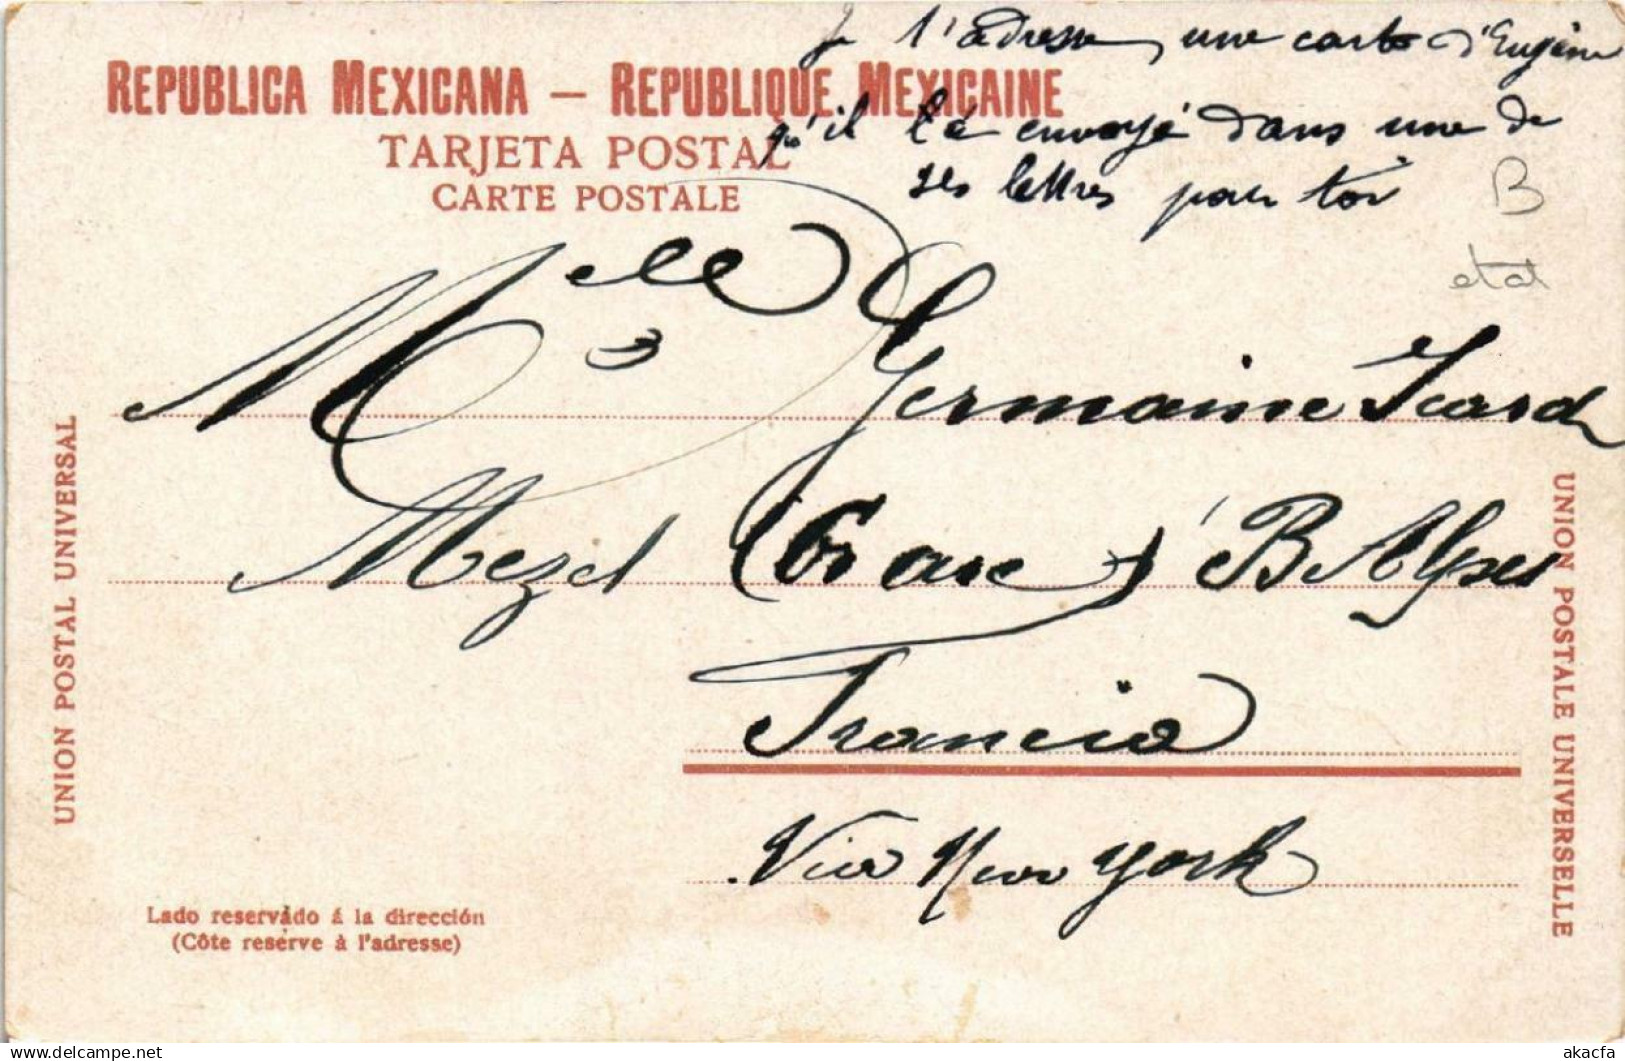 Je t'adresse, une carte d'Eugène
qu'il t'a envoyé dans une de
ses lettres pour toi
REPUBLICA MEXICANA — REPUBLIQUE MEXICAINE
TARJETA POSTAL
CARTE POSTALE
B
etat
Mlle Germaine Icard
Mezel B Alpes
Francia
Via New York
UNION POSTAL UNIVERSAL
UNION POSTALE UNIVERSELLE
Lado reservado á la dirección
(Côte reserve à l'adresse)
akacfa